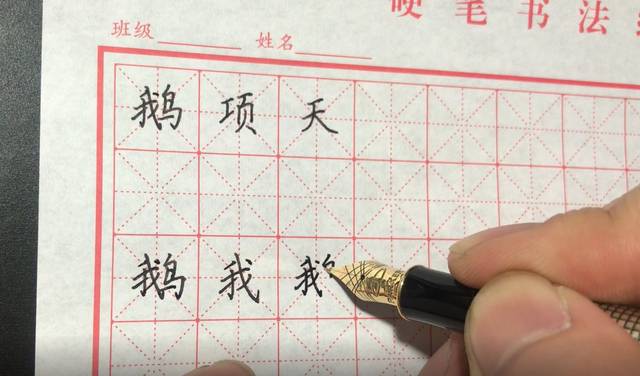 硬笔书法
班级 姓名
鹅项天
鹅我